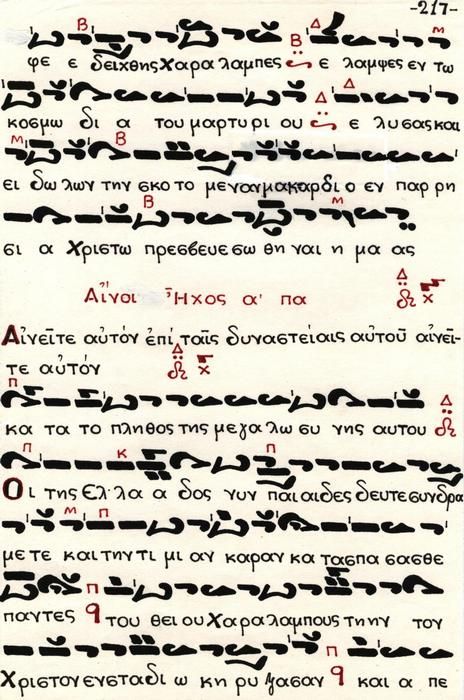 -217-
φε ε δείχθης Χαρα λαμπες ε λαμψες εν τω
κοσμω δι α του μαρτυρι ου ε λυσας και
ει δω λων την σκο το με ναν μακαρ δι ο εν παρ ρη
σι α Χριστω πρεσβευε σω θη ναι η μα ας
Αἶνοι Ἦχος α' πα
Αἰνεῖτε αὐτόν ἐπί ταῖς δυναστείαις αὐτοῦ αἰνεῖ-
τε αὐτόν
κα τα το πληθος της μεγα λω συ νης αυτου
Οι της Ελ λα α δος νυν παι αιδες δευτε συνδρα
με τε και την τι μι αν καραν κα τασπα σασθε
παντες του θει ου Χαραλαμπους την ην τον
Χριστον ευσταδι ω κη ρυ ξασαν και α πε